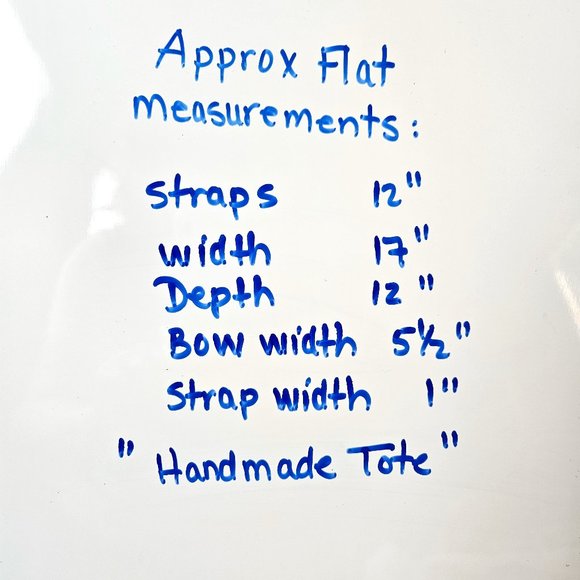 Approx Flat
measurements:
straps 12"
width 17"
Depth 12"
Bow width 5½"
strap width 1"
"Handmade Tote"